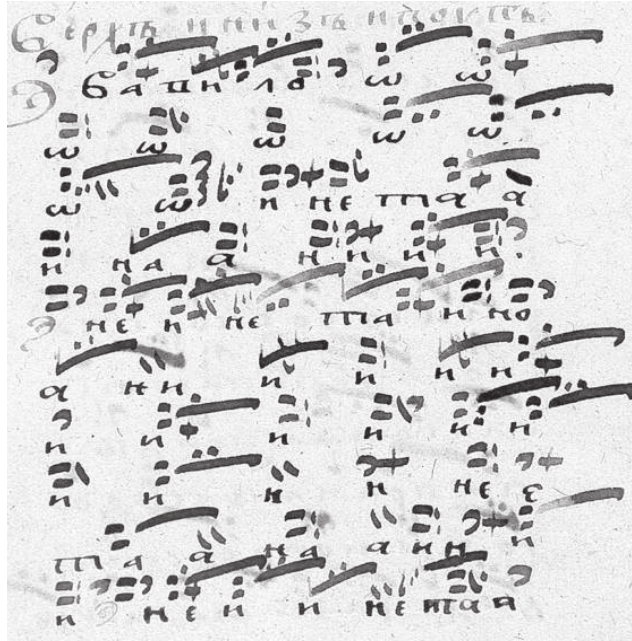 Верхъ и низъ и поуть.
ва ви ло ѡ ѡ
ѡ ѡ ѡ ѡ ѡ
ѡ ѡ и не та а
и на а н и и и
не н не та н но
а ни и и и
и и и и и и
и и и и не е
та а на а ни и
и не и и не та а